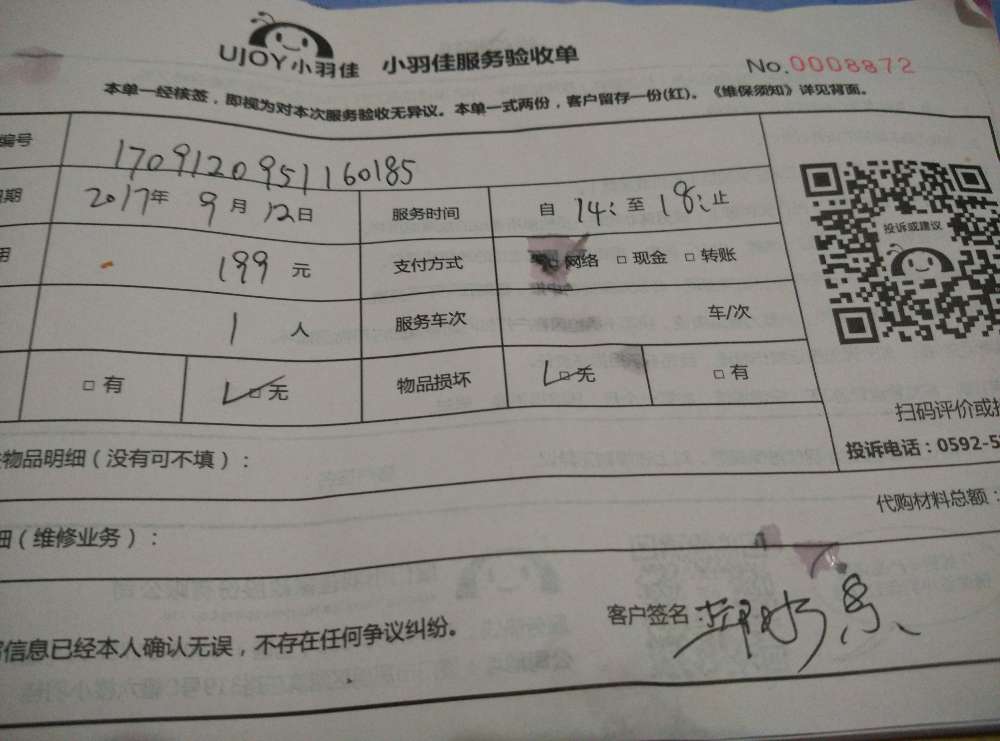 UJOY小羽佳 小羽佳服务验收单 No.0008872
本单一经核签，即视为对本次服务验收无异议。本单一式两份，客户留存一份(红)。《维保须知》详见背面。
编号 1709120951160185
期 2017年9月12日 服务时间 自14:至18:止
用 199元 支付方式 □网络 □现金 □转账
投诉或建议
1人 服务车次 车/次
□有 □无 物品损坏 □无 □有
扫码评价或
投诉电话：0592-5
物品明细（没有可不填）：
代购材料总额：
细（维修业务）：
信息已经本人确认无误，不存在任何争议纠纷。 客户签名：